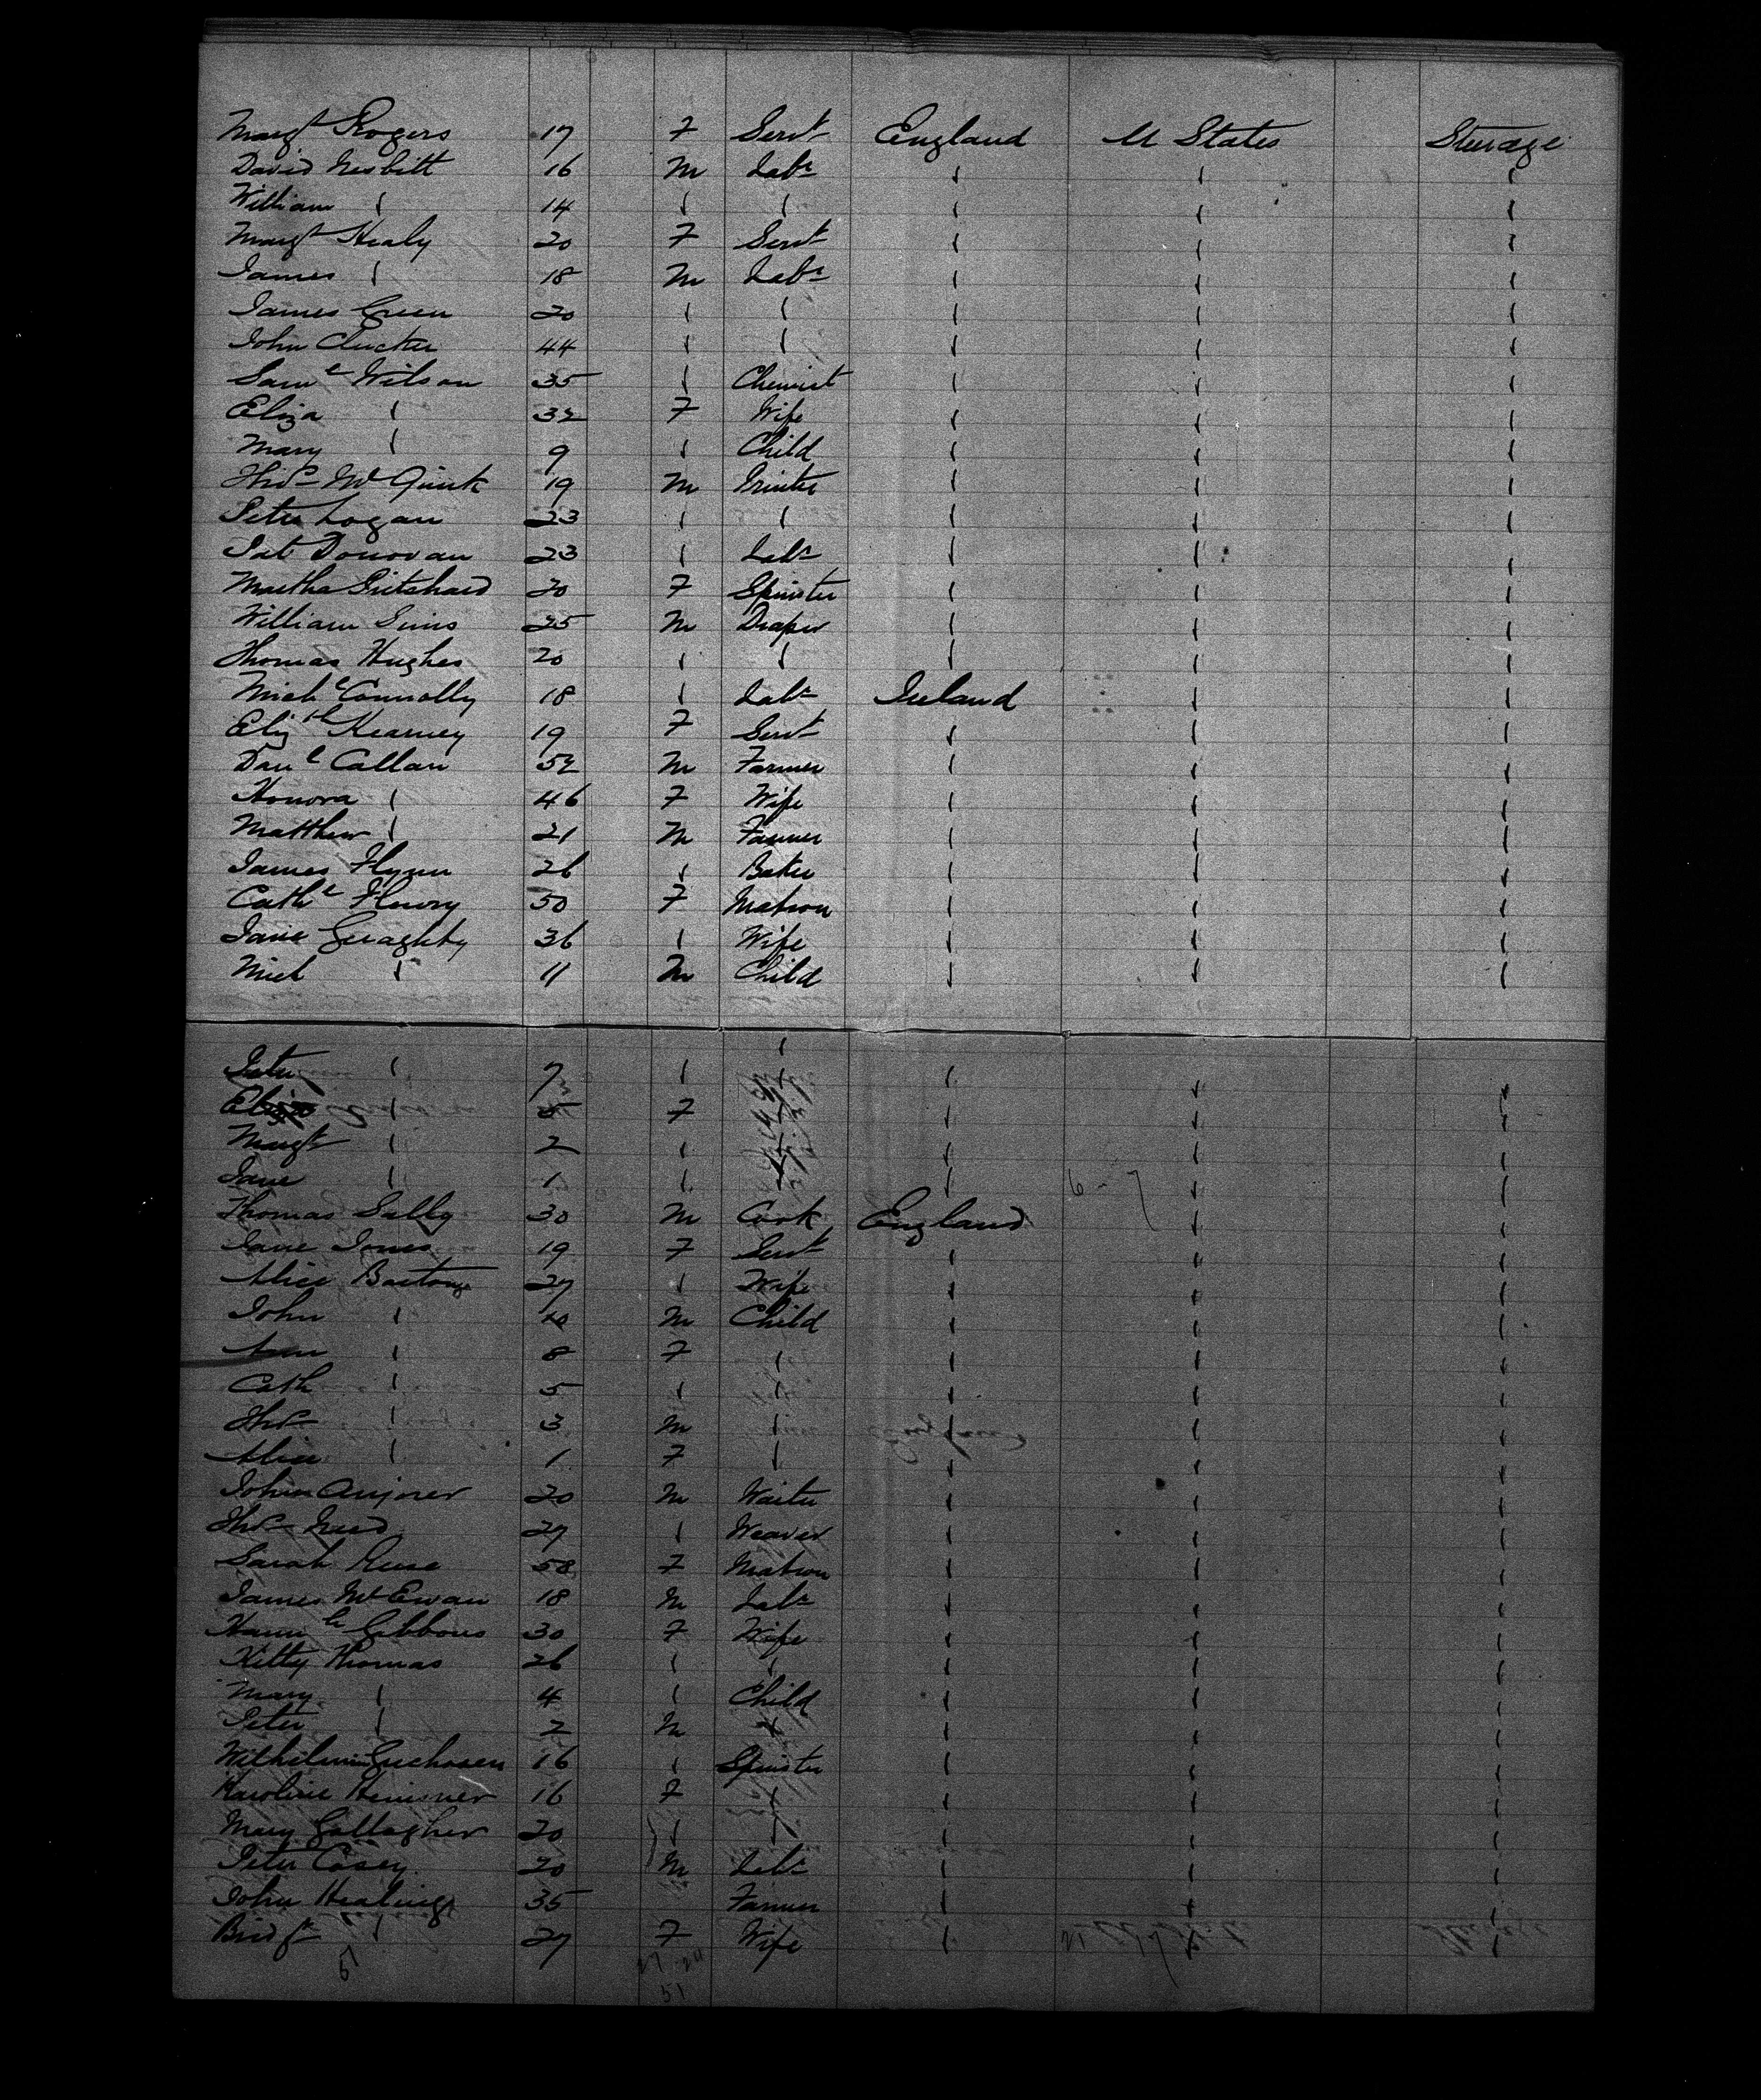 Margt Rogers 17 F Servt England U States Steerage
David Nesbitt 16 M Labr " " "
William " 14 " " " " "
Margt Healy 20 F Servt " " "
James " 18 M Labr " " "
James Green 20 " " " " "
John 44 " " " " "
Saml Wilson 35 " Chemist " " "
Eliza " 32 F Wife " " "
Mary " 9 " Child " " "
Thos Mc Quirk 19 M Printer " " "
Peter Logan 23 " " " " "
Pat Donovan 23 " Labr " " "
Martha Pritchard 20 F Spinster " " "
William Sims 25 M Draper " " "
Thomas Hughes 20 " " " " "
Michl Connolly 18 " Labr Ireland " "
Elizth Kearney 19 F Servt " " "
Danl Callan 52 M Farmer " " "
Honora " 46 F Wife " " "
Matthew " 21 M Farmer " " "
James Flynn 26 " Baker " " "
Cathe Flewry 50 F Matron " " "
Jane Geraghty 36 " Wife " " "
Mich " 11 M Child " " "
Peter " 7 " " " " "
Eliza " 5 F " " " "
Margt " 2 " " " " "
Jane " 1 " " " " "
Thomas Sally 30 M Cook England " "
Jane Jones 19 F Servt " " "
Alice Barton 27 " Wife " " "
John " 10 M Child " " "
Ann " 8 F " " " "
Cath " 5 " " " " "
Thos " 3 M " " " "
Alice " 1 F " " " "
John 20 M Waiter " " "
Thos 27 " Weaver " " "
Sarah 50 F Matron " " "
James McEwan 18 M Labr " " "
Hannh Gibbons 30 F Wife " " "
Kitty Thomas 26 " " " " "
Mary " 4 " Child " " "
Peter " 2 M " " " "
16 " Spinster " " "
Karoline 16 F " " " "
Mary Gallagher 20 " " " " "
Peter Casey 20 M Labr " " "
John Healing 35 Farmer " " "
Bridgt " 27 F Wife " " "
51